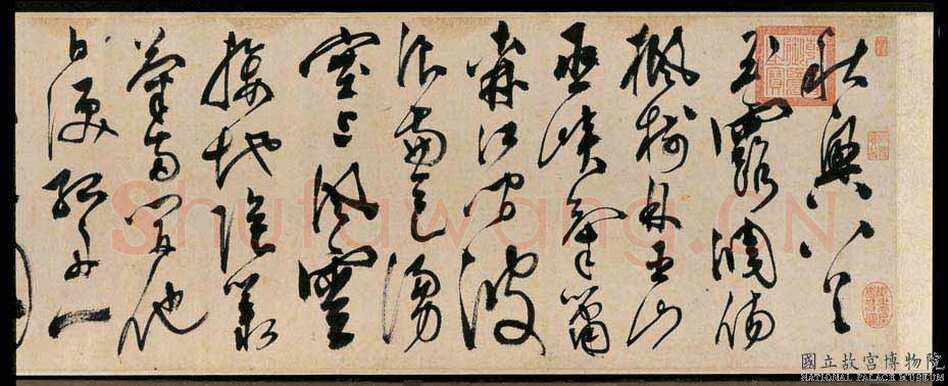 秋興八首
玉露凋傷
楓樹林巫山
巫峽氣蕭
森江間波
浪兼天湧
塞上風雲
接地陰叢
菊兩開他
日淚孤舟一
Shufawang.CN
國立故宮博物院
NATIONAL PALACE MUSEUM